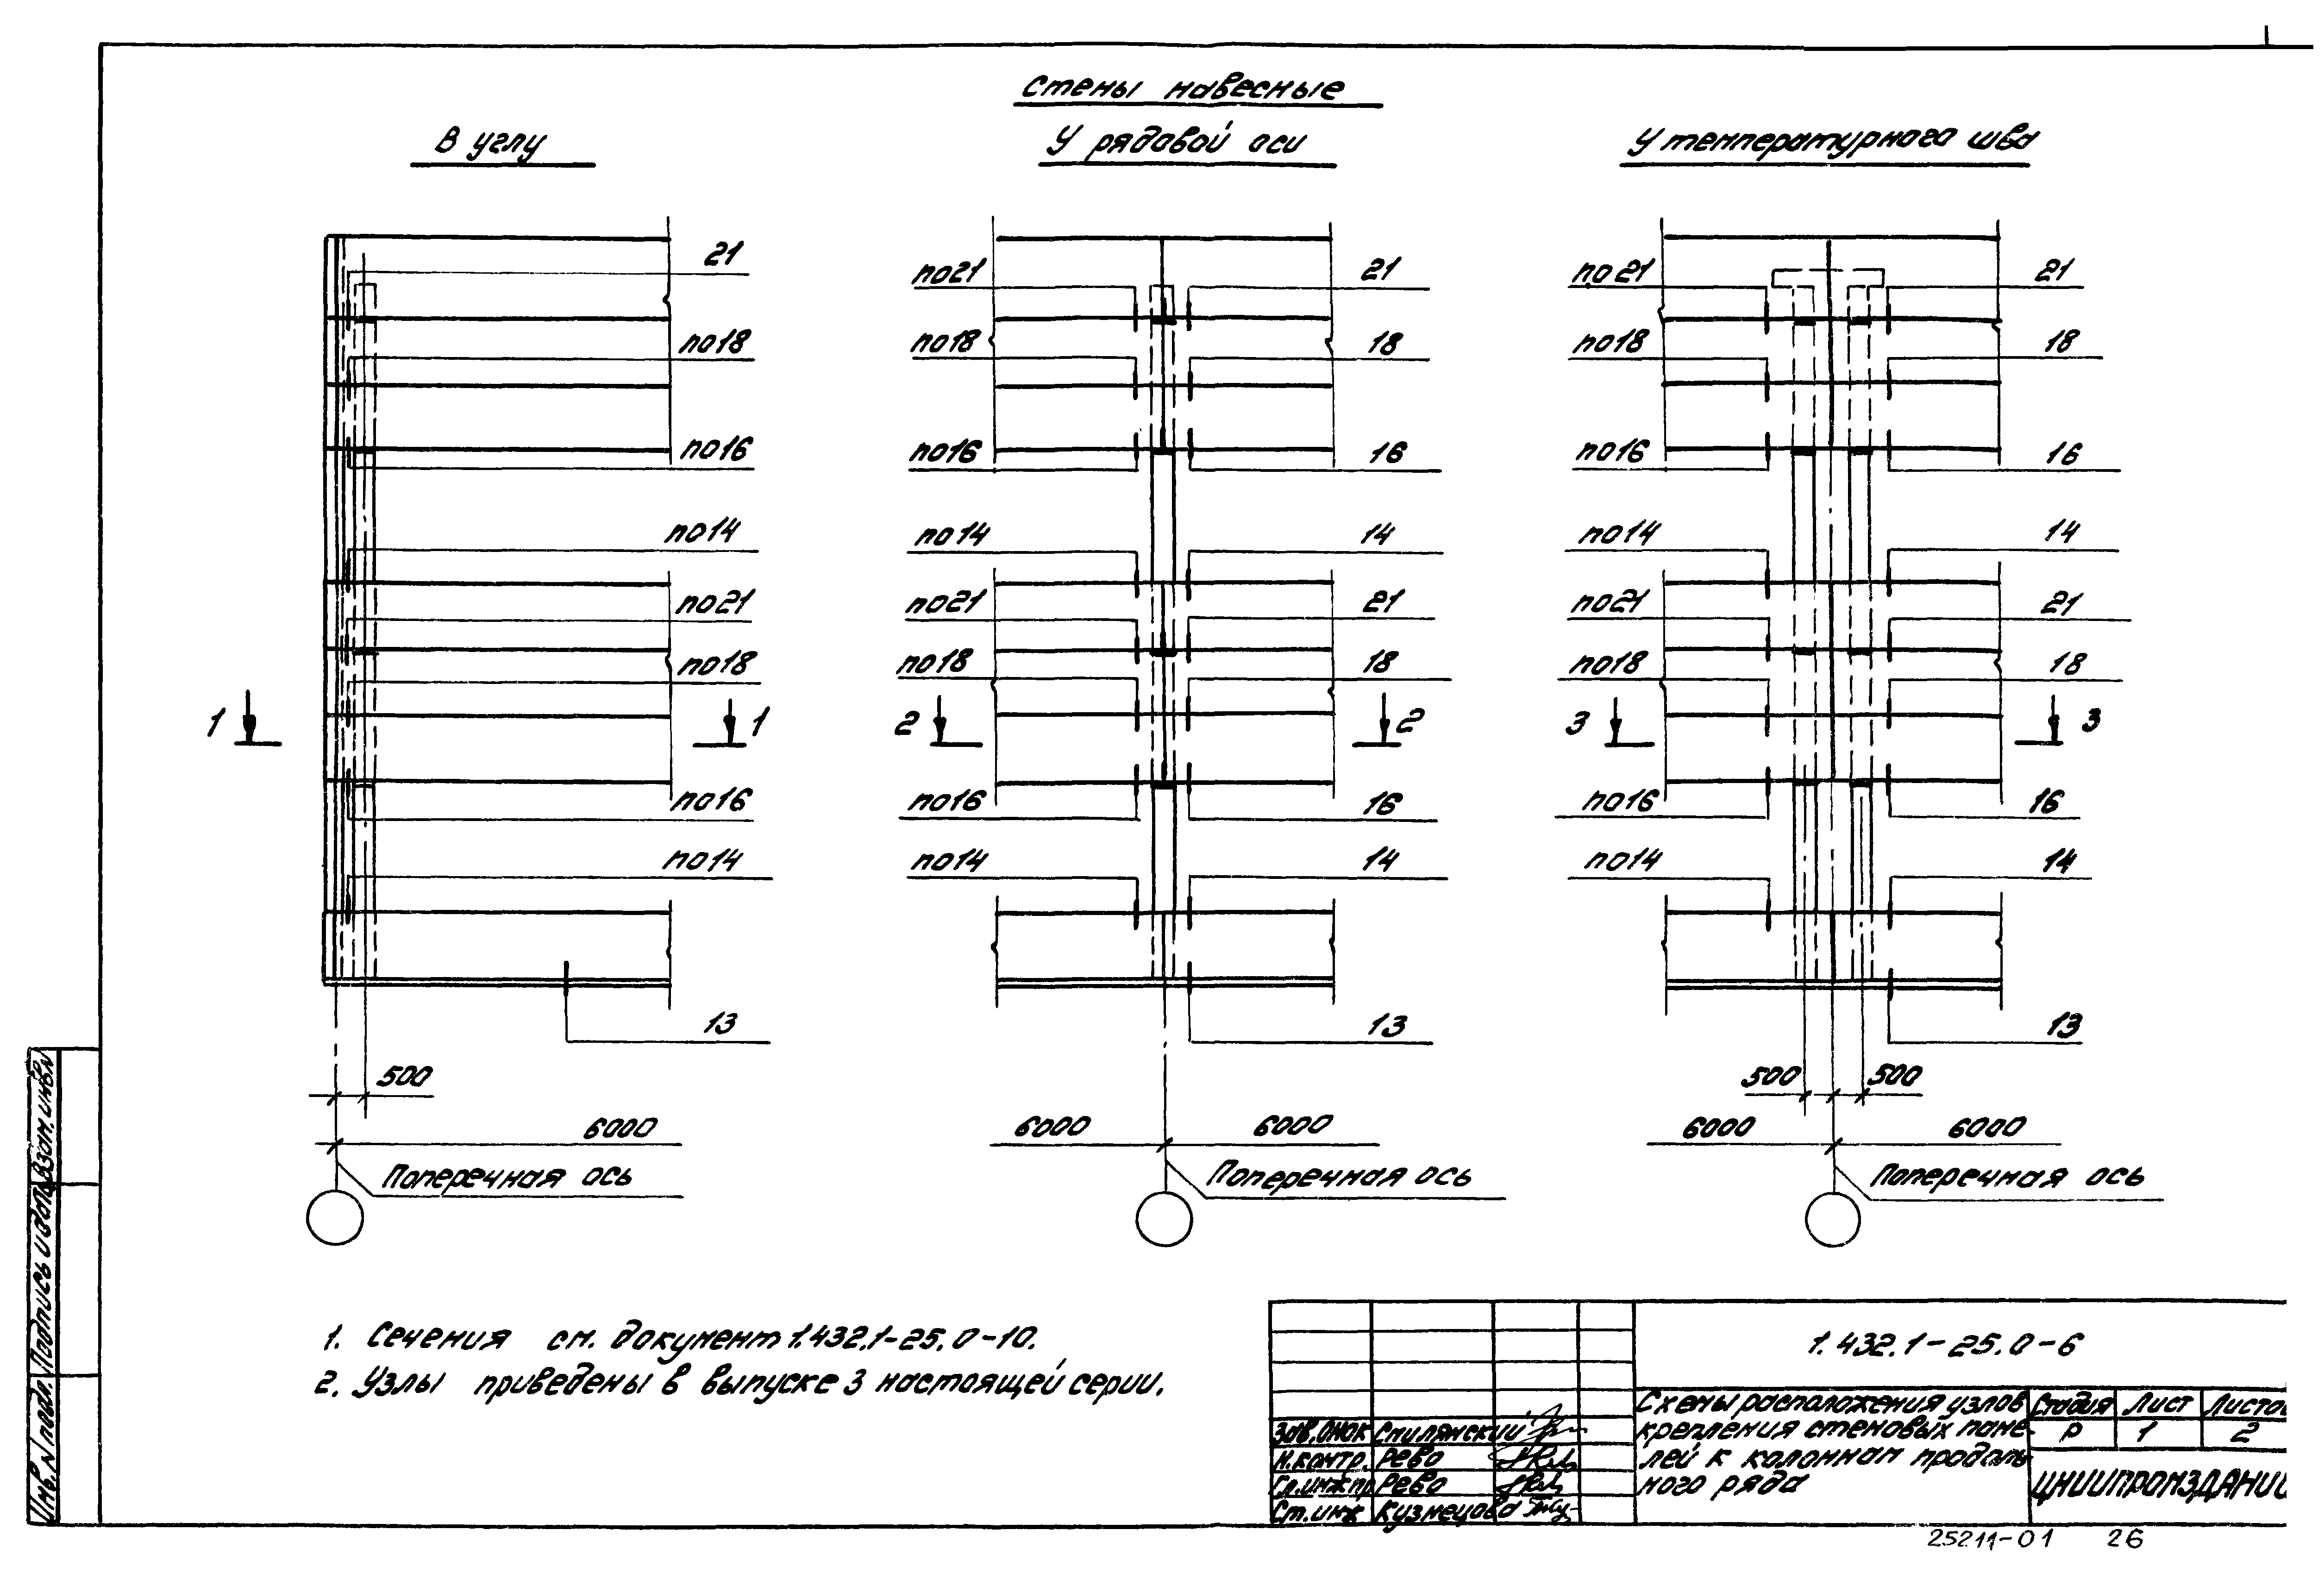 Стены навесные
В углу
У рядовой оси
У температурного шва
21
по18
по16
по14
по21
по18
1 1
по16
по14
13
500
6000
Поперечная ось
по21 21
по18 18
по16 16
по14 14
по21 21
по18 18
2 2
по16 16
по14 14
13
6000 6000
Поперечная ось
по21 21
по18 18
по16 16
по14 14
по21 21
по18 18
3 3
по16 16
по14 14
13
500 500
6000 6000
Поперечная ось
1. Сечения см. документ 1.432.1-25.0-10.
2. Узлы приведены в выпуске 3 настоящей серии.
1.432.1-25.0-6
Схемы расположения узлов
крепления стеновых пане-
лей к колоннам продоль-
ного ряда
Стадия Лист
Р 1 2
ЦНИИПРОМЗДАНИИ
Зав.ОНОК Смилянский
Н.контр. Рево
Гл.инж.пр Рево
Ст.инж Кузнецова
Инв.N подл. Подпись и дата Взам.инв.N
25211-01 26